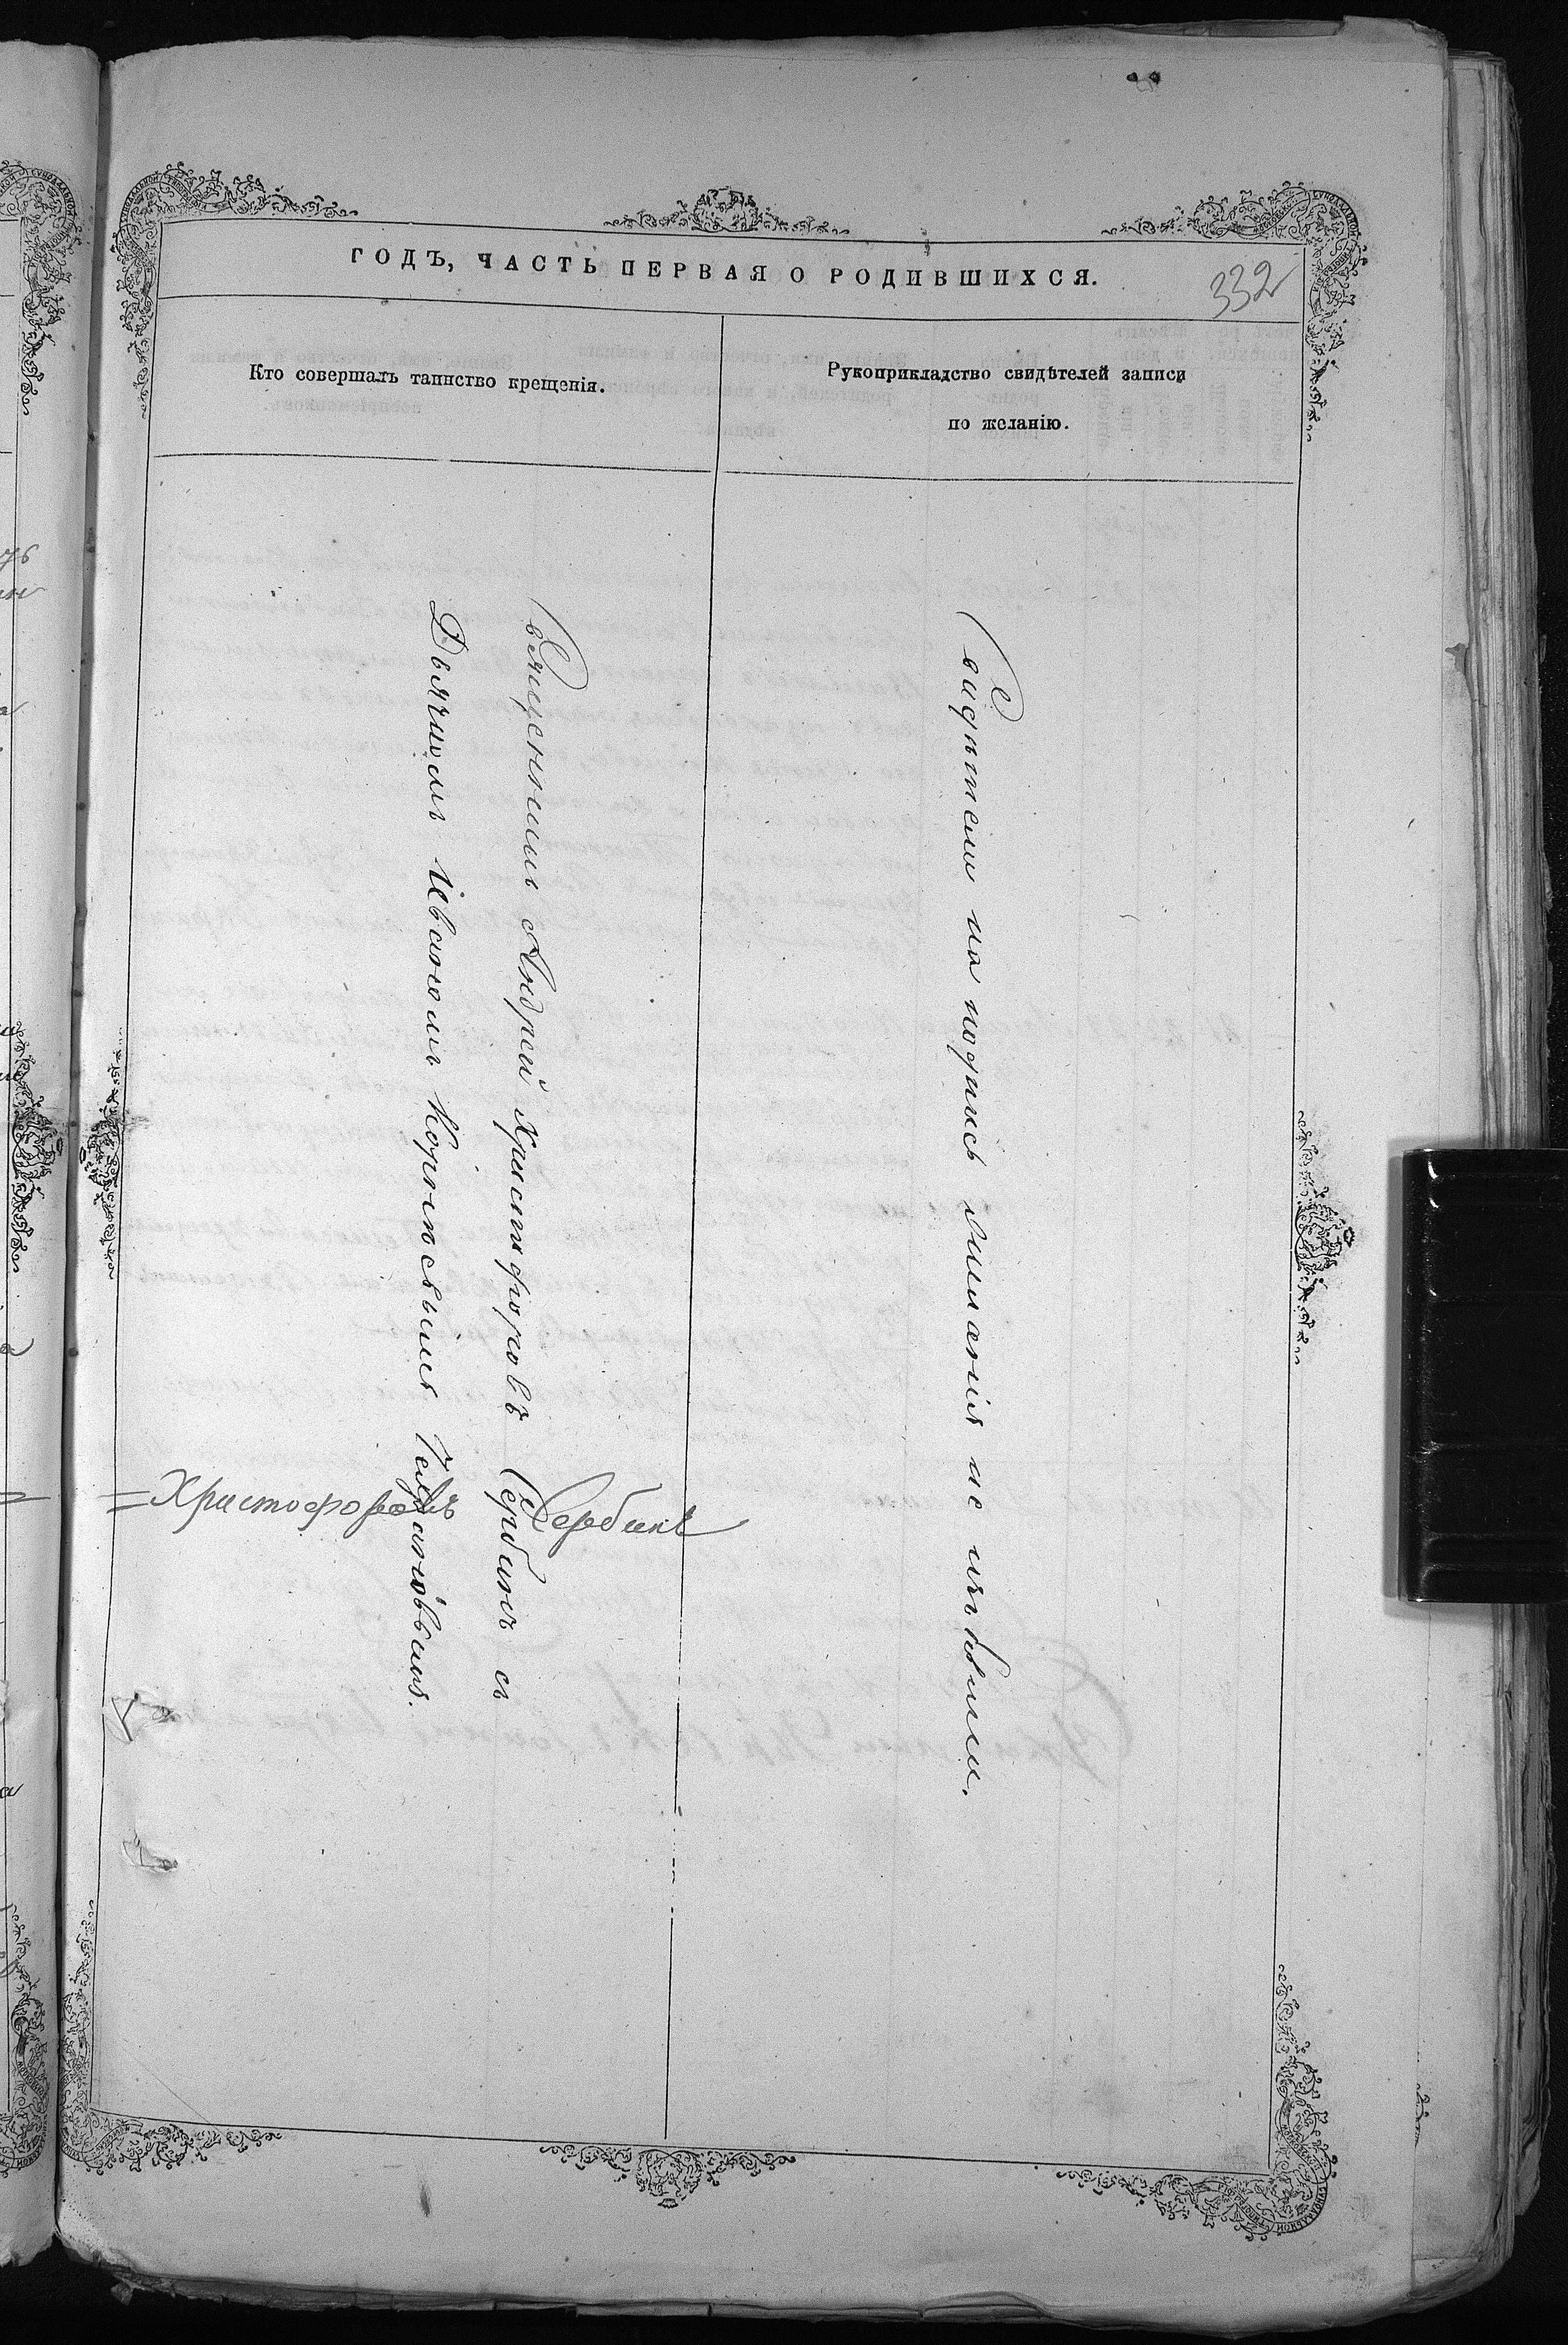 ГОДЪ, ЧАСТЬ ПЕРВАЯ О РОДИВШИХСЯ.
332
Кто совершалъ таинство крещенія.
Рукоприкладство свидѣтелей записи
по желанію.
Священникъ Андрей Христофоровъ Сербинъ съ
Дьячкомъ Іваномъ Корнѣевымъ
Свидѣтели на подпись желанія не изъявили.
=Христофоровъ Сербинъ